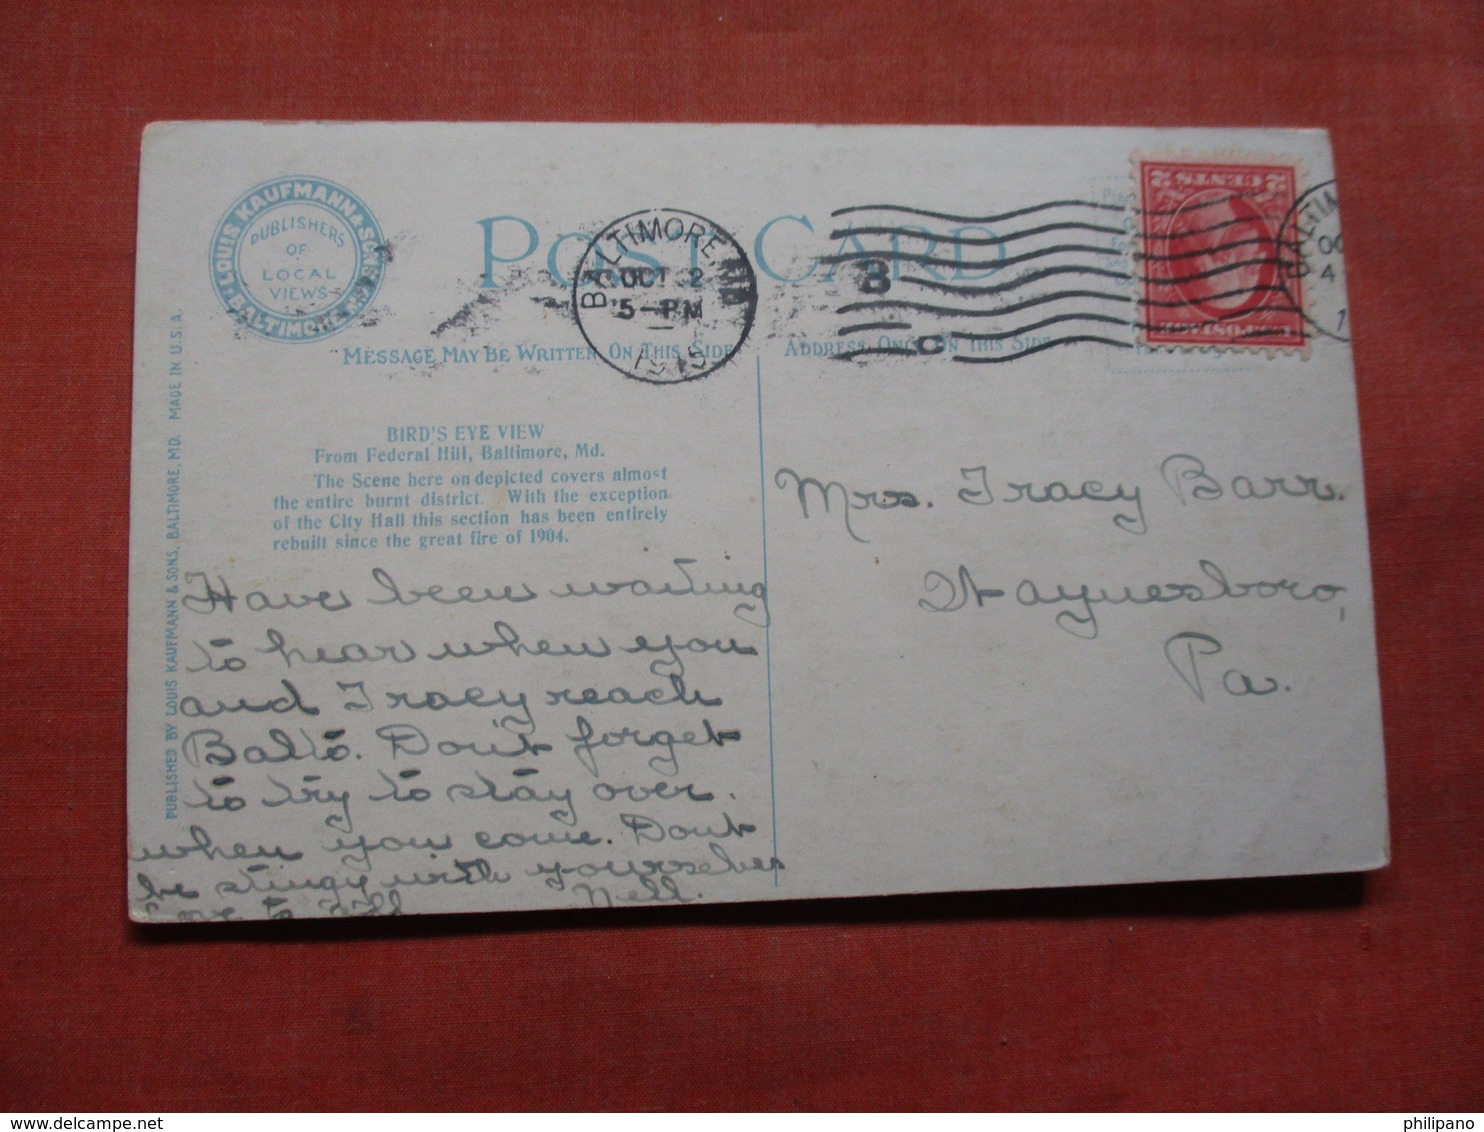 LOUIS KAUFMANN & SONS
BALTIMORE, MD.
PUBLISHERS
OF
LOCAL
VIEWS
POST CARD
BALTIMORE, MD
OCT 2
5-PM
B
C
2 CENTS 2
MESSAGE MAY BE WRITTEN ON THIS SIDE
ADDRESS ONLY ON THIS SIDE
PUBLISHED BY LOUIS KAUFMANN & SONS, BALTIMORE, MD. MADE IN U.S.A.
BIRD'S EYE VIEW
From Federal Hill, Baltimore, Md.
The Scene here on depicted covers almost
the entire burnt district. With the exception
of the City Hall this section has been entirely
rebuilt since the great fire of 1904.
Have been waiting
to hear when you
and Tracy reach
Balto. Don't forget
to try to stay over.
when you come. Dont
be stingy with yourselves
Nell.
Mrs. Tracy Barr.
Waynesboro,
Pa.
philipano
www.delcampe.net